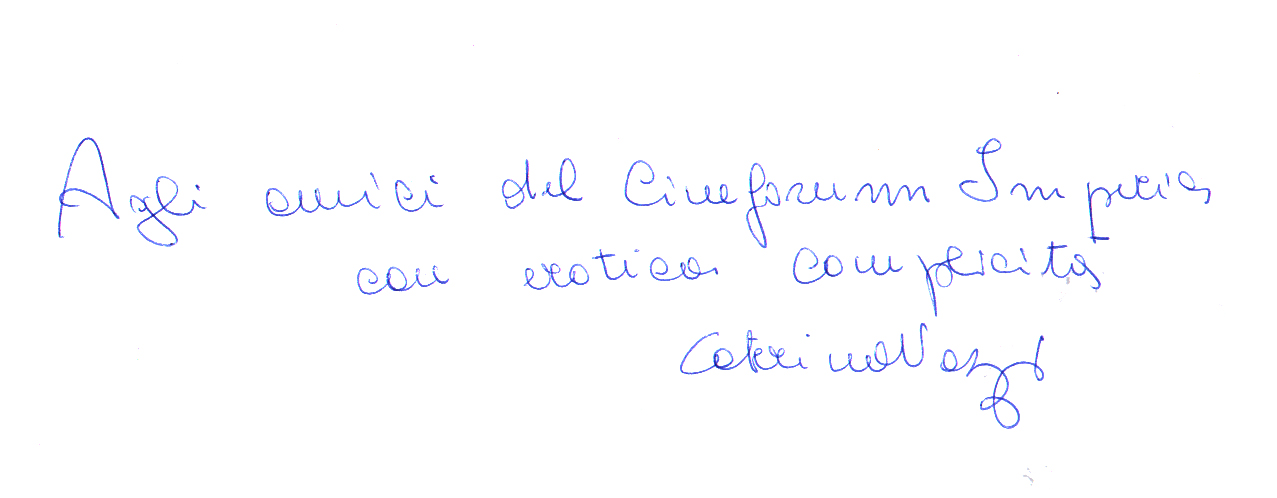 Agli amici del Cineforum Imperia
con erotica complicità
Caterina Vozzi